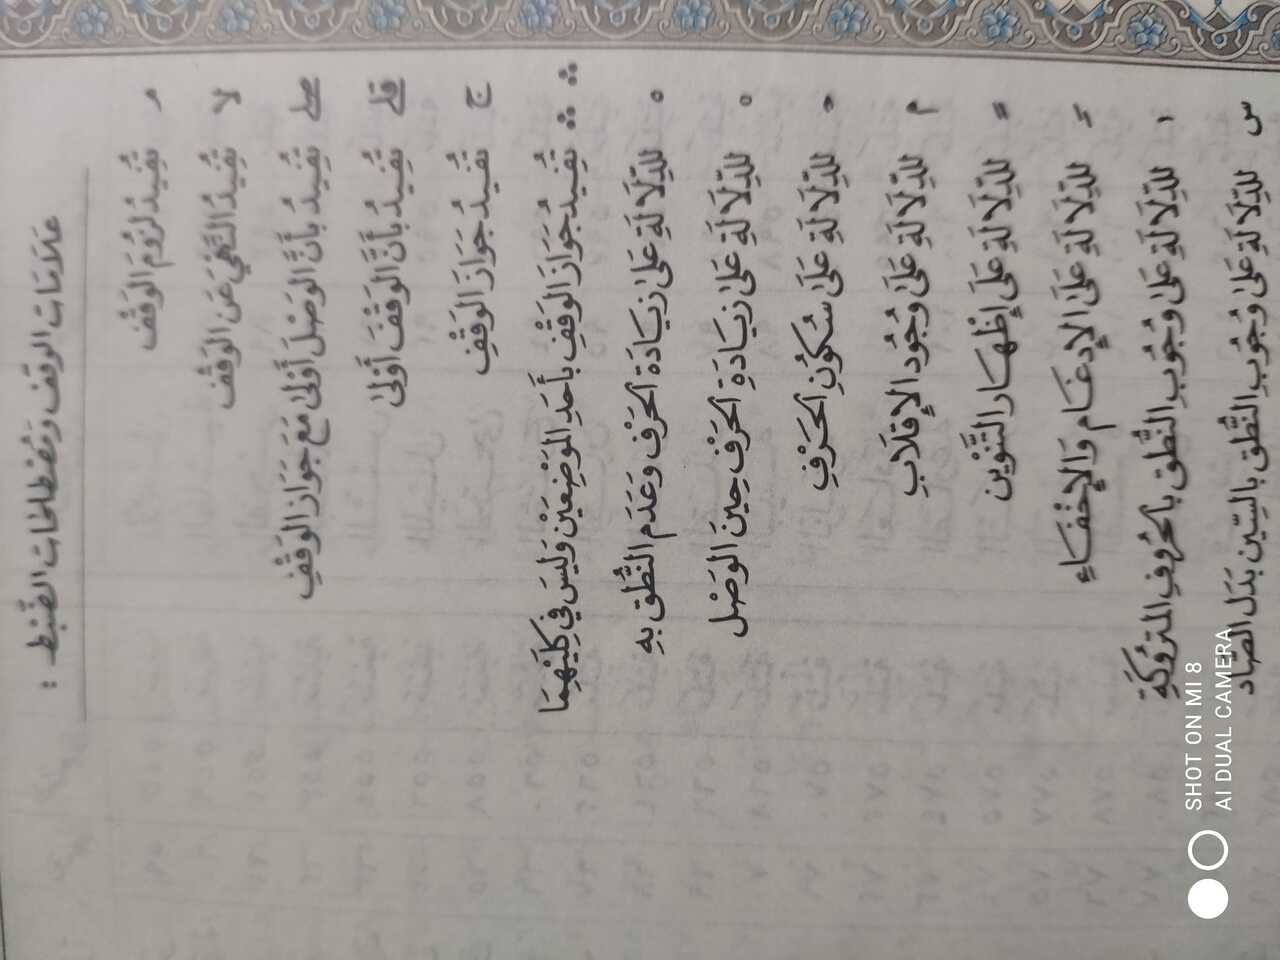 عَلَامَات الوَقف وَمُصْطلحَات الضَّبْط :
مـ تُفِيدُ لُزُومَ الوَقْف
لا تُفِيدُ النَّهْيَ عَن الوَقْف
صلے تُفِيدُ بأَنَّ الوَصْلَ أَوْلىٰ مَعَ جَوَاز الوَقْفِ
قلے تُفِيدُ بأَنَّ الوَقْفَ أَوْلىٰ
ج تُفِيدُ جَوَازَ الوَقْفِ
∴ ∴ تُفِيدُ جَوَازَ الوَقْفِ بأَحَدِ المَوْضِعَيْن وَلَيْسَ فِي كِلَيْهِمَا
ه للدِّلَالَةِ عَلىٰ زِيَادَة الحَرْف وَعَدَم النُّطْق بهِ
ه للدِّلَالَةِ عَلىٰ زِيَادَةِ الحَرْف حِينَ الوَصْل
للدِّلَالَةِ عَلىٰ سُكُونِ الحَرْفِ
م للدِّلَالَةِ عَلىٰ وُجُود الإِقلَابِ
للدِّلَالَةِ عَلىٰ إِظْهَار التَّنْوين
للدِّلَالَةِ عَلىٰ الإِدغَام وَالإِخْفَاءِ
للدِّلَالَةِ عَلىٰ وُجُوب النُّطْق بالحُرُوفِ المَتْرُوكَةِ
س للدِّلَالَةِ عَلىٰ وُجُوب النُّطْق بالسِّين بَدَل الصَّاد
SHOT ON MI 8
AI DUAL CAMERA